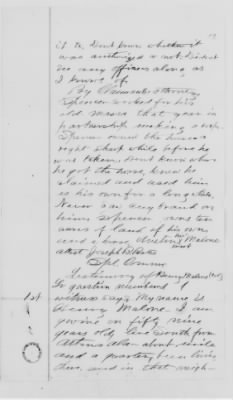 it or. Dont know whether it
was authorized or not. Didnt
see any officers along as
I know of.
By Commrs Attorney
Spencer worked for his
old master that year in
partnership making a crop.
I have owned the horse
right short while before he
was taken. Dont know where
he got the horse, know he
claimed and used him
as his own for a long while.
Never saw any brand on
him. Spencer owns ten
acres of land of his own
and a horse.
attest Joseph
Spl. Commr
Testimony of Henry Malone
To question numbered 1
1st witness says My name is
Henry Malone. I am
going on fifty nine
years old, live South from
Athens Ala. about mile
and a quarter, been living
there, and in that neigh-